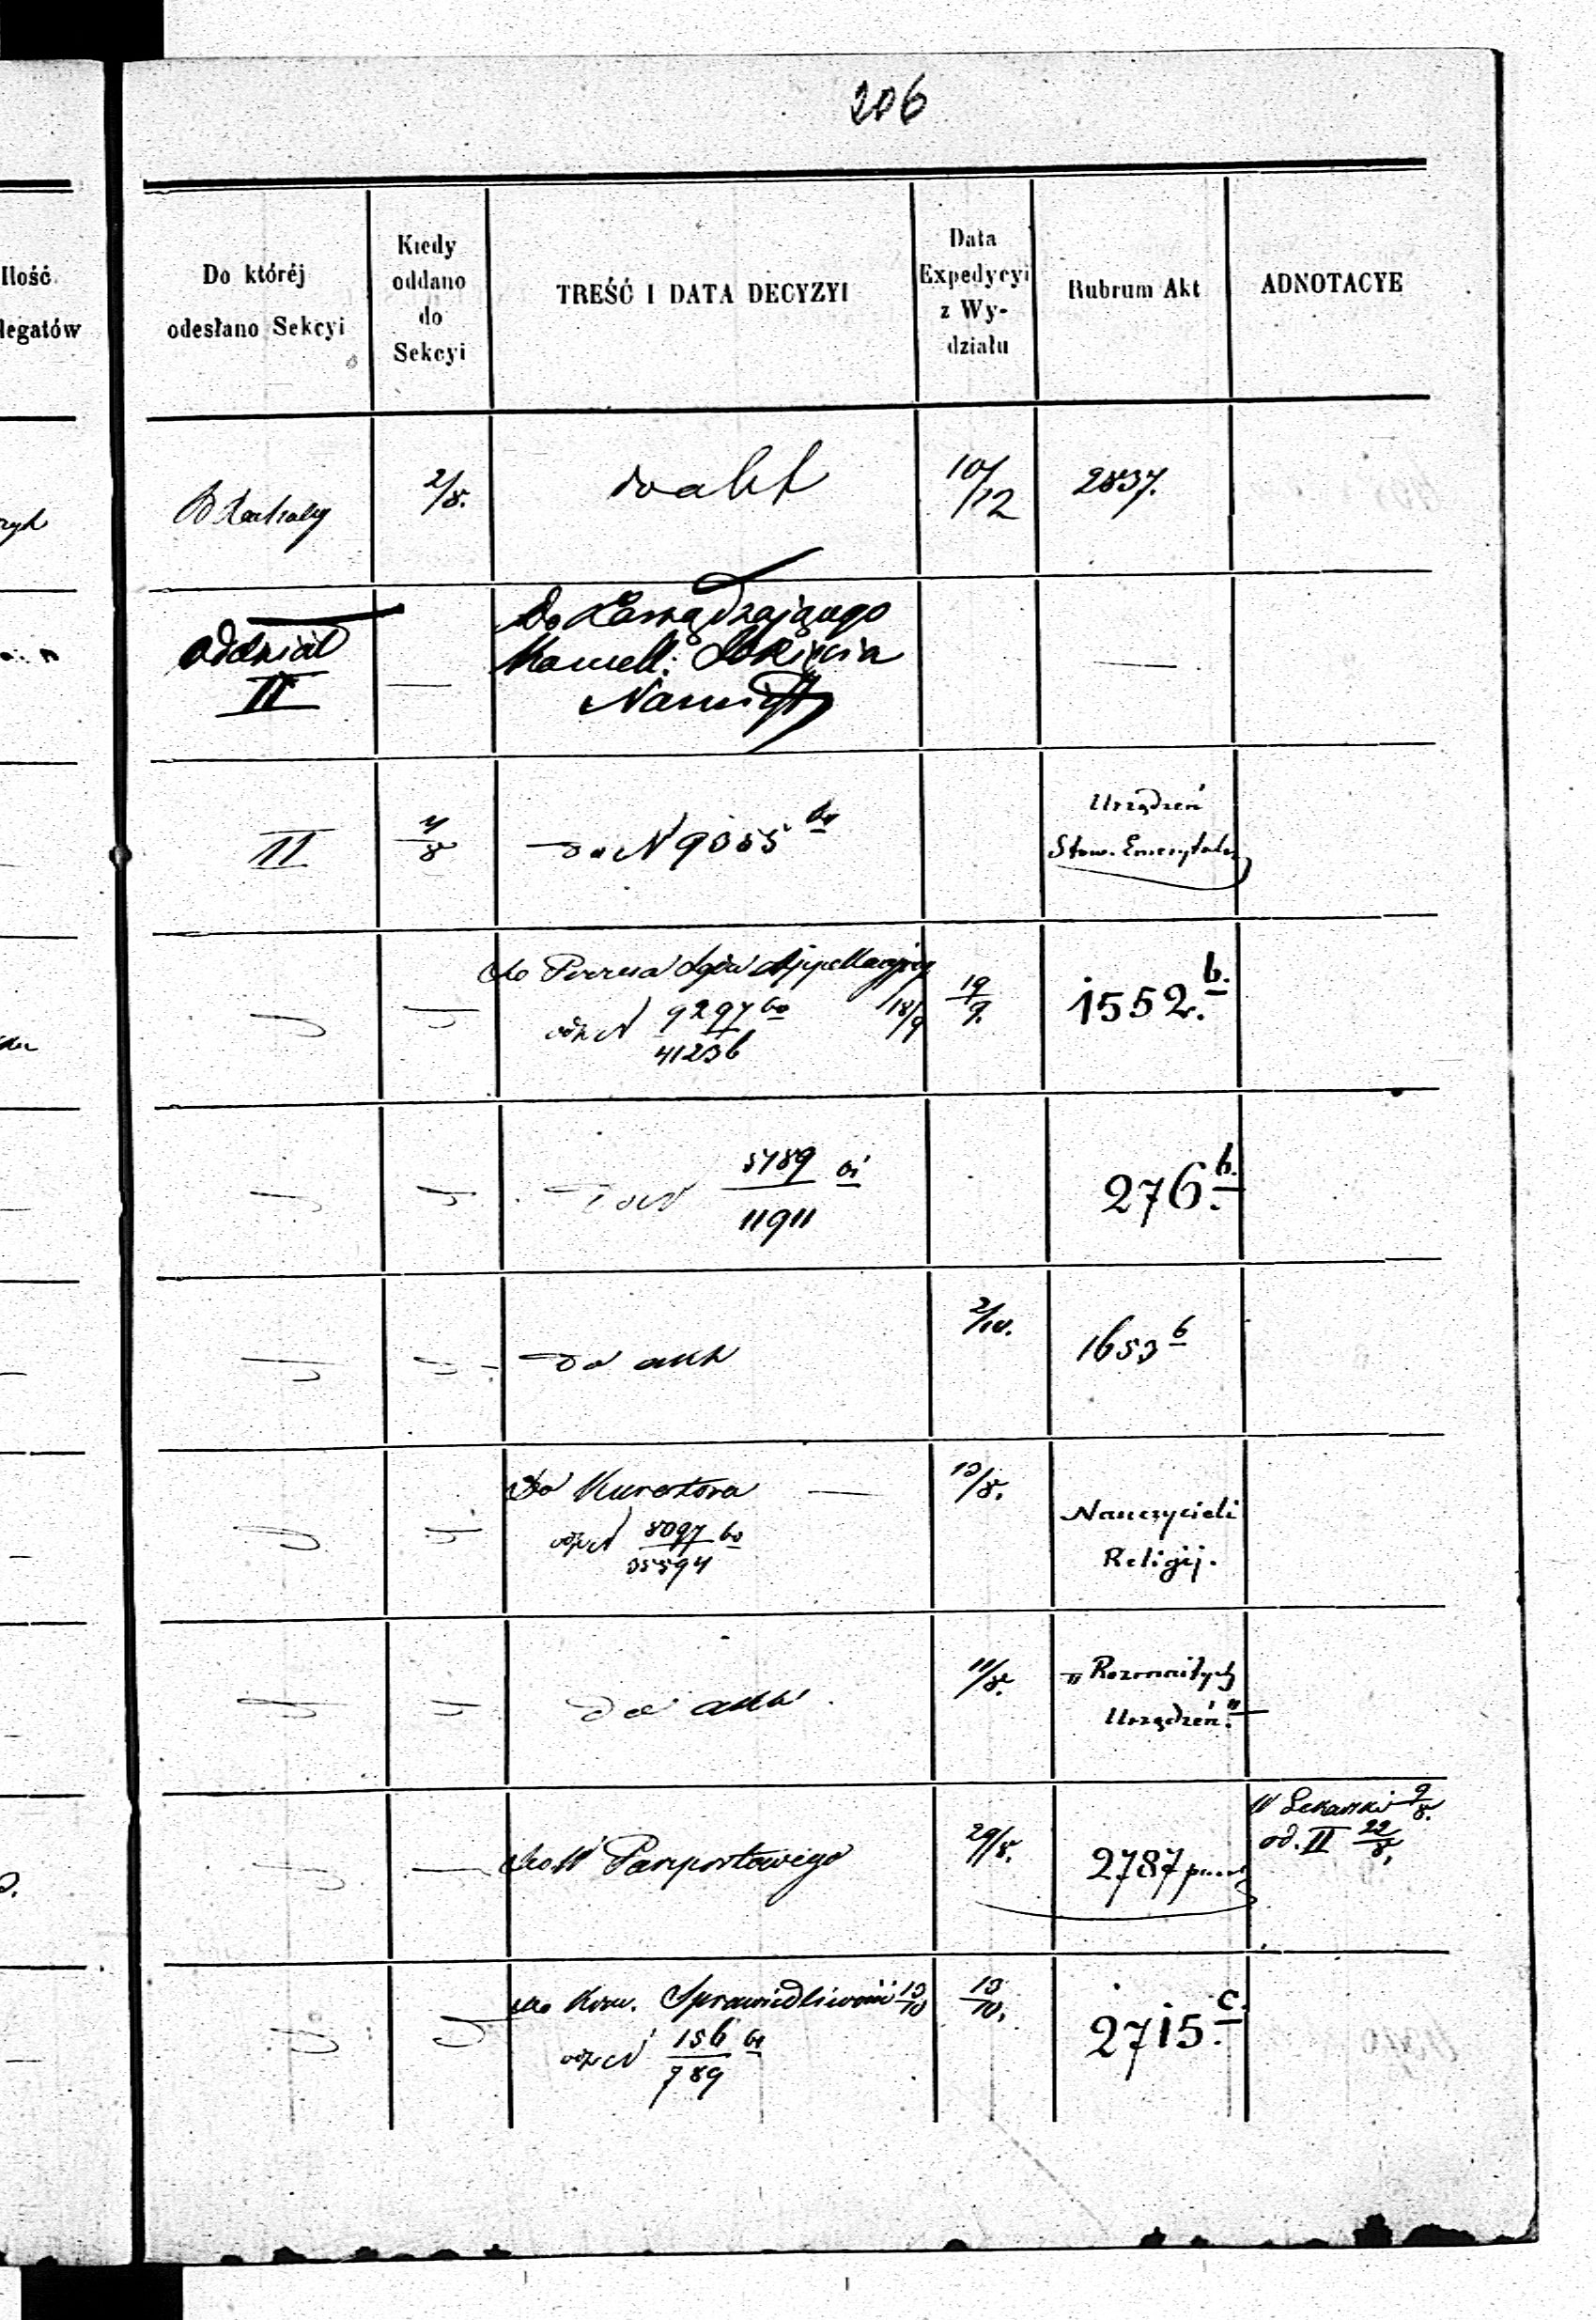 206
Ilość
legatów
Do któréj
odesłano Sekcyi
Kiedy
oddano
do
Sekcyi
TREŚĆ I DATA DECYZYI
Data
Expedycyi
z Wy-
działu
Rubrum Akt
ADNOTACYE
2/8.
do akt
10/12
2837.
Oddział
II
Do Zarządzającego
Kancell: Xięcia
Namiest
II
4/8
do N 9355
Urządzeń
Stow. Emerytaln
Do Prezesa Sądu Appellacyjnej
odp N 9297/41236
18/9
19/9.
1552. b.
do N 5789/11911
276. b.
do akt
2/10.
1653 b
Do Kuratora
odp N 8097/35594
13/8.
Nauczycieli
Religij.
do akt
11/8.
„Rozmaitych
Urządzeń."
Do W Paszportowego
29/8.
2787
W Lekarski 9/8.
od. II 22/8.
Do Kom. Sprawiedliwości 13/10
odp N 156/789
13/10.
2715. c.